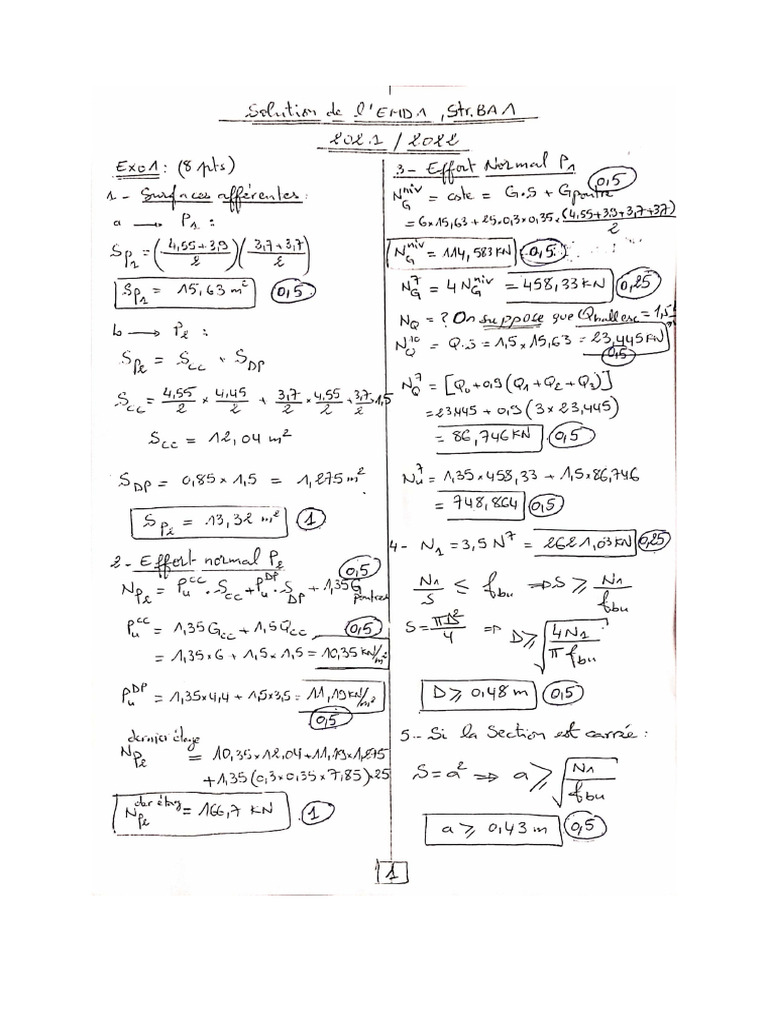 Solution de l'EMD1, Str.BA1
2021/2022
Exo1: (8 pts)
1- Surfaces afférentes:
a → P1 :
SP1 = ((4,55+3,9)/2)((3,7+3,7)/2)
SP1 = 15,63 m² (0,5)
b → P2 :
SP2 = Scc + SDP
Scc = 4,55/2 × 4,45/2 + 3,7/2 × 4,55/2 + 3,7/2 × 1,5
Scc = 12,04 m²
SDP = 0,85 × 1,5 = 1,275 m²
SP2 = 13,32 m² (1)
2- Effort normal P2
(0,5)
NP2 = Pu^cc . Scc + Pu^DP . SDP + 1,35 G poutres
Pu^cc = 1,35 Gcc + 1,5 Qcc (0,5)
= 1,35×6 + 1,5×1,5 = 10,35 kN/m²
Pu^DP = 1,35×4,4 + 1,5×3,5 = 11,19 kN/m²
(0,5)
dernier étage
NP2 = 10,35×12,04 + 11,19×1,275
+ 1,35(0,3×0,35×7,85)×25
NP2^der étag = 166,7 KN (1)
3- Effort Normal P1
NG^niv = cste = G.S + Gpoutre (0,5)
= 6×15,63 + 25×0,3×0,35×(4,55+3,9+3,7+3,7)/2
NG^niv = 114,583 KN (0,5)
NG^7 = 4 NG^niv = 458,33 KN (0,25)
NQ = ? On suppose que Qhall esc = 1,5
NQ^10 = Q.S = 1,5×15,63 = 23,445 KN
(0,5)
NQ^7 = [Q0 + 0,9(Q1 + Q2 + Q3)]
= 23,445 + 0,9(3×23,445)
= 86,746 KN (0,5)
Nu^7 = 1,35×458,33 + 1,5×86,746
= 748,864 (0,5)
4- N1 = 3,5 N^7 = 2621,03 KN (0,25)
N1/S ≤ fbu ⇒ S ≥ N1/fbu
S = πD²/4 ⇒ D ≥ √(4N1/(π fbu))
D ≥ 0,48 m (0,5)
5- Si la Section est carrée:
S = a² ⇒ a ≥ √(N1/fbu)
a ≥ 0,43 m (0,5)
1